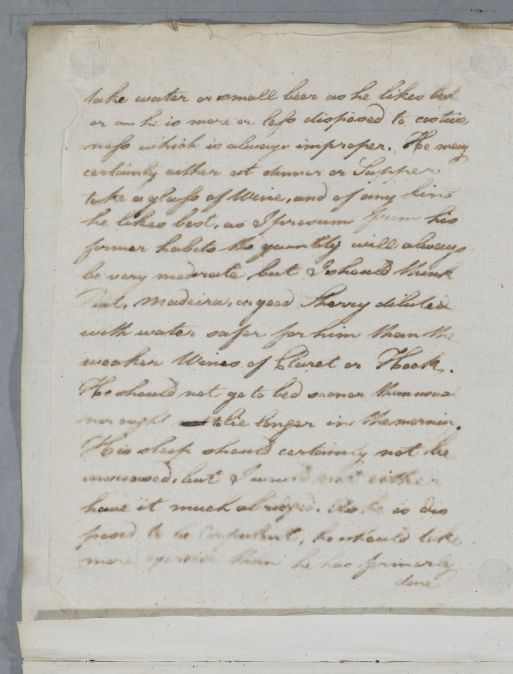 take water or small beer as he likes best
or as he is more or less disposed to costive
ness which is always improper. He may
certainly either at dinner or Supper
take a glass of Wine, and of any kind
he likes best, as I presume from his
former habits the quantity will always
be very moderate but I should think
Port, Madeira, or good Sherry diluted
with water safer for him than the
weaker Wines of Claret or Hock.
He should not go to bed sooner than usual
nor ought to lie longer in the morning.
His sleep should certainly not be
increased, but I would not either
have it much abridged. As he is dis
posed to be Corpulent, he should take
more exercise than he has formerly
done